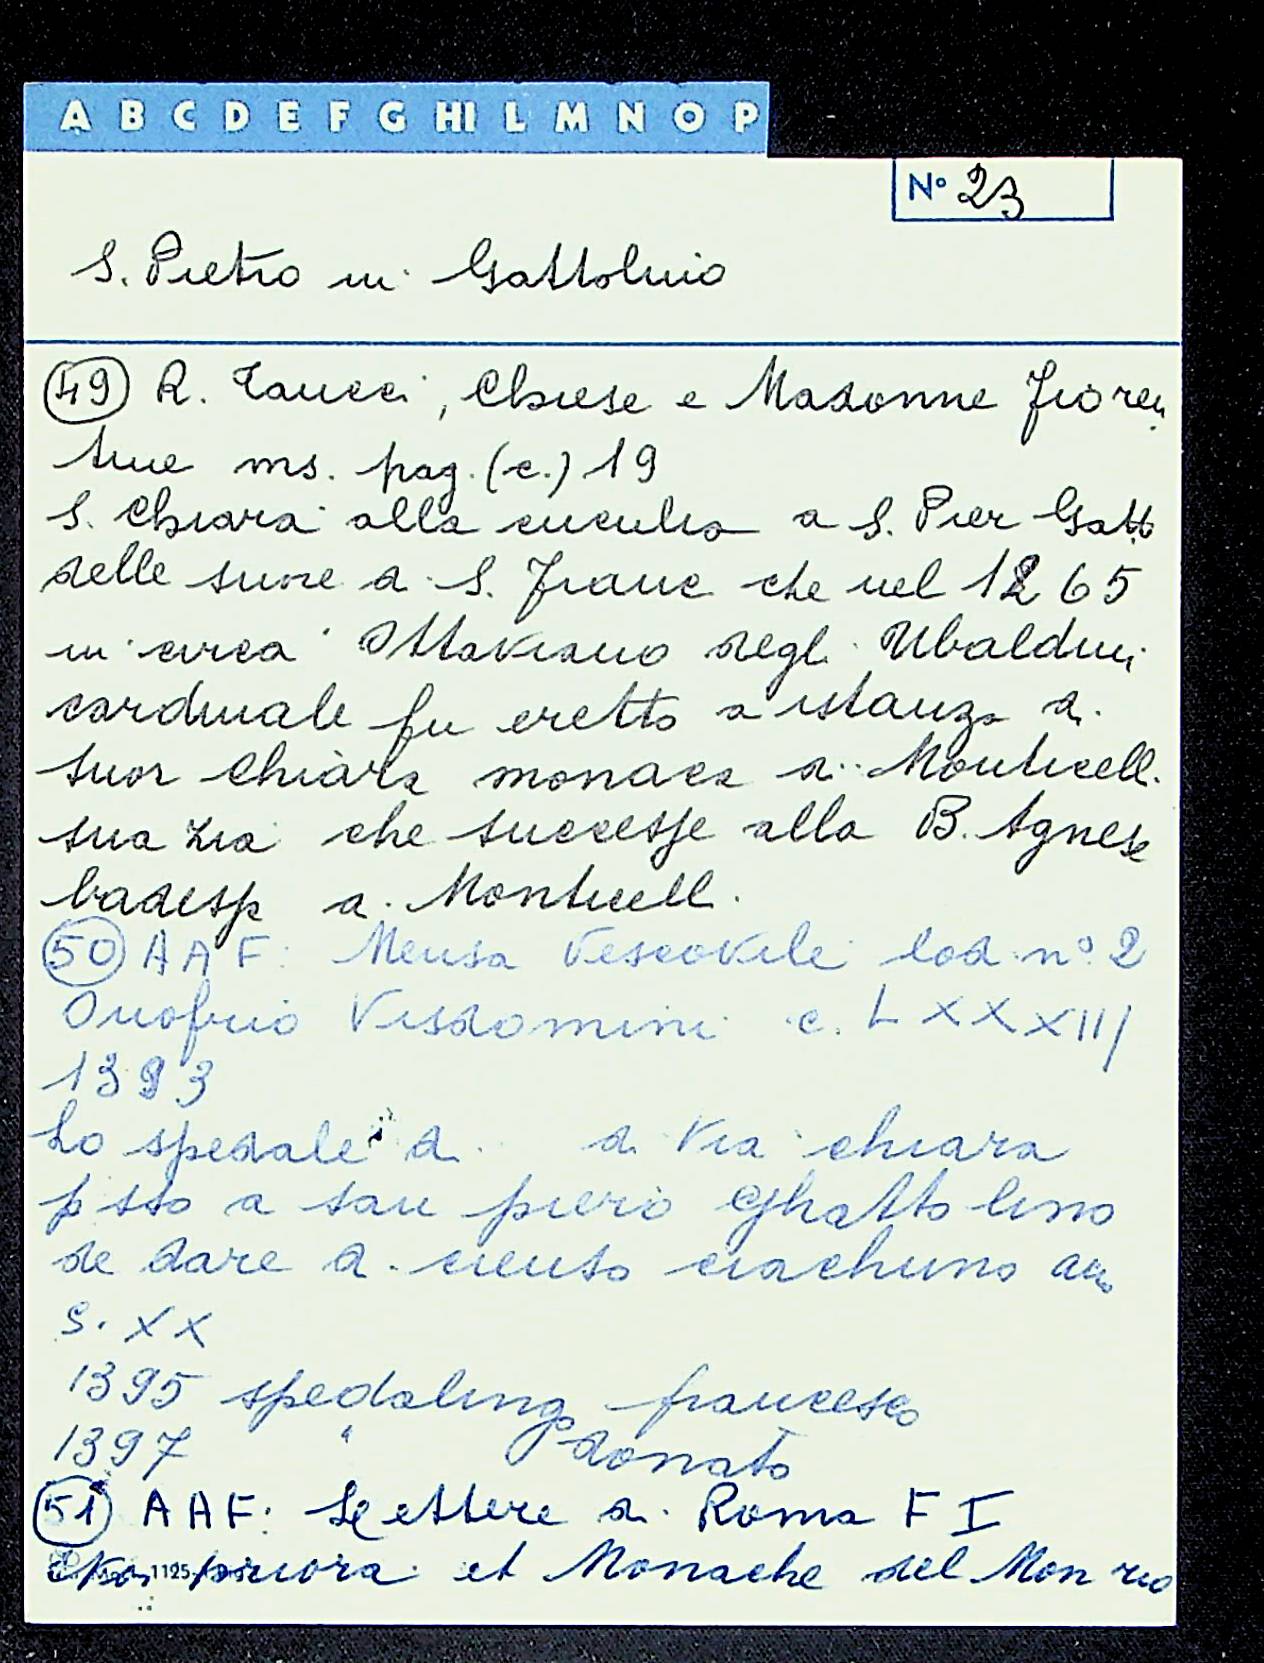 A B C D E F G HI L M N O P
N° 23
S. Pietro in Gattolino
49 R. Taucci, Chiese e Madonne Fioren
tine ms. pag. (c.) 19
S. Chiara alla cuculia a S. Pier Gatt
delle suore di S. Franc che nel 1265
in circa Ottaviano degli Ubaldini
cardinale fu eretto a istanza di
suor Chiara monaca di Monticelli
sua zia che successe alla B. Agnese
badessa a Monticelli.
50 AAF: Mensa Vescovile Cod. n° 2
Onofrio Visdomini c. LXXXIII
1393
Lo spedale di di via chiara
p sso a san piero Ghattolino
de dare di cienso ciachuno an
S. XX
1395 spedalingo francesco
1397 " donato
51 AAF: Lettere di Roma F I
priora et Monache del Mon rio
1125